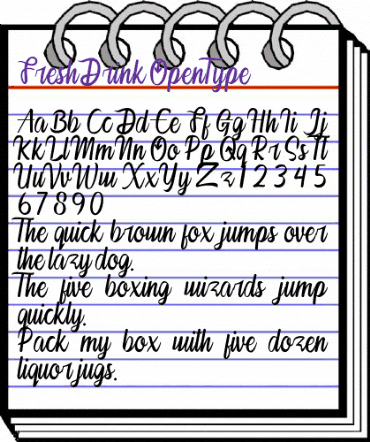 Fresh Drink OpenType
Aa Bb Cc Dd Ee Ff Gg Hh Ii Jj
Kk Ll Mm Nn Oo Pp Qq Rr Ss Tt
Uu Vv Ww Xx Yy Zz 1 2 3 4 5
6 7 8 9 0
The quick brown fox jumps over
the lazy dog.
The five boxing wizards jump
quickly.
Pack my box with five dozen
liquor jugs.